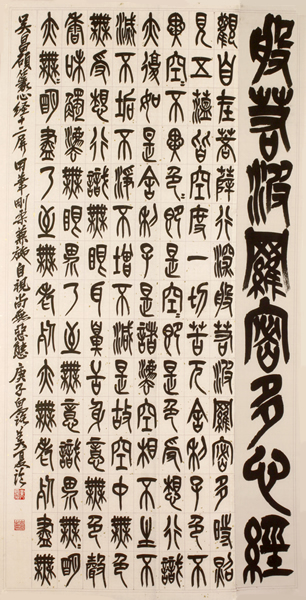 般若波羅密多心經
觀自在菩薩行深般若波羅密多時照
見五蘊皆空度一切苦厄舍利子色不
異空〻不異色〻即是空〻即是色受想行識
亦復如是舍利子是諸法空相不生不
滅不垢不淨不增不減是故空中無色
無受想行識無眼耳鼻舌身意無色聲
香味觸法無眼界乃至無意識界無
亦無〻明盡乃至無老死亦無老死盡無
吳昌碩篆心經十二屏用筆剛柔兼施自視尚無惡態庚子